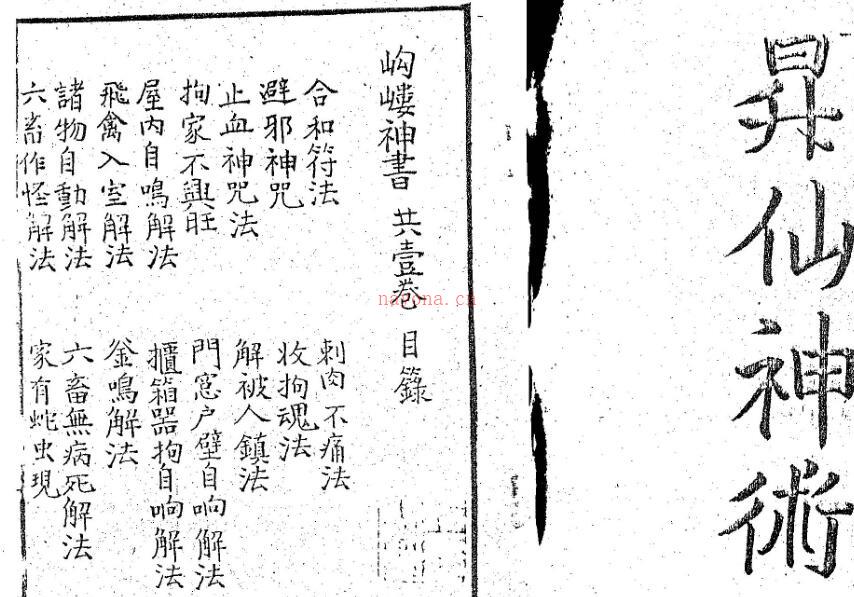 昇仙神術
岣嶁神書 共壹卷 目錄
合和符法 刺肉不痛法
避邪神咒 收拘魂法
止血神咒法 解被人鎮法
拘家不興旺 門窓户壁自响解法
屋内自鳴解法 櫃箱器拘自响解法
飛禽入室解法 釜鳴解法
諸物自動解法 六畜無病死解法
六畜作怪解法 家有蛇虫現
nayona.cn